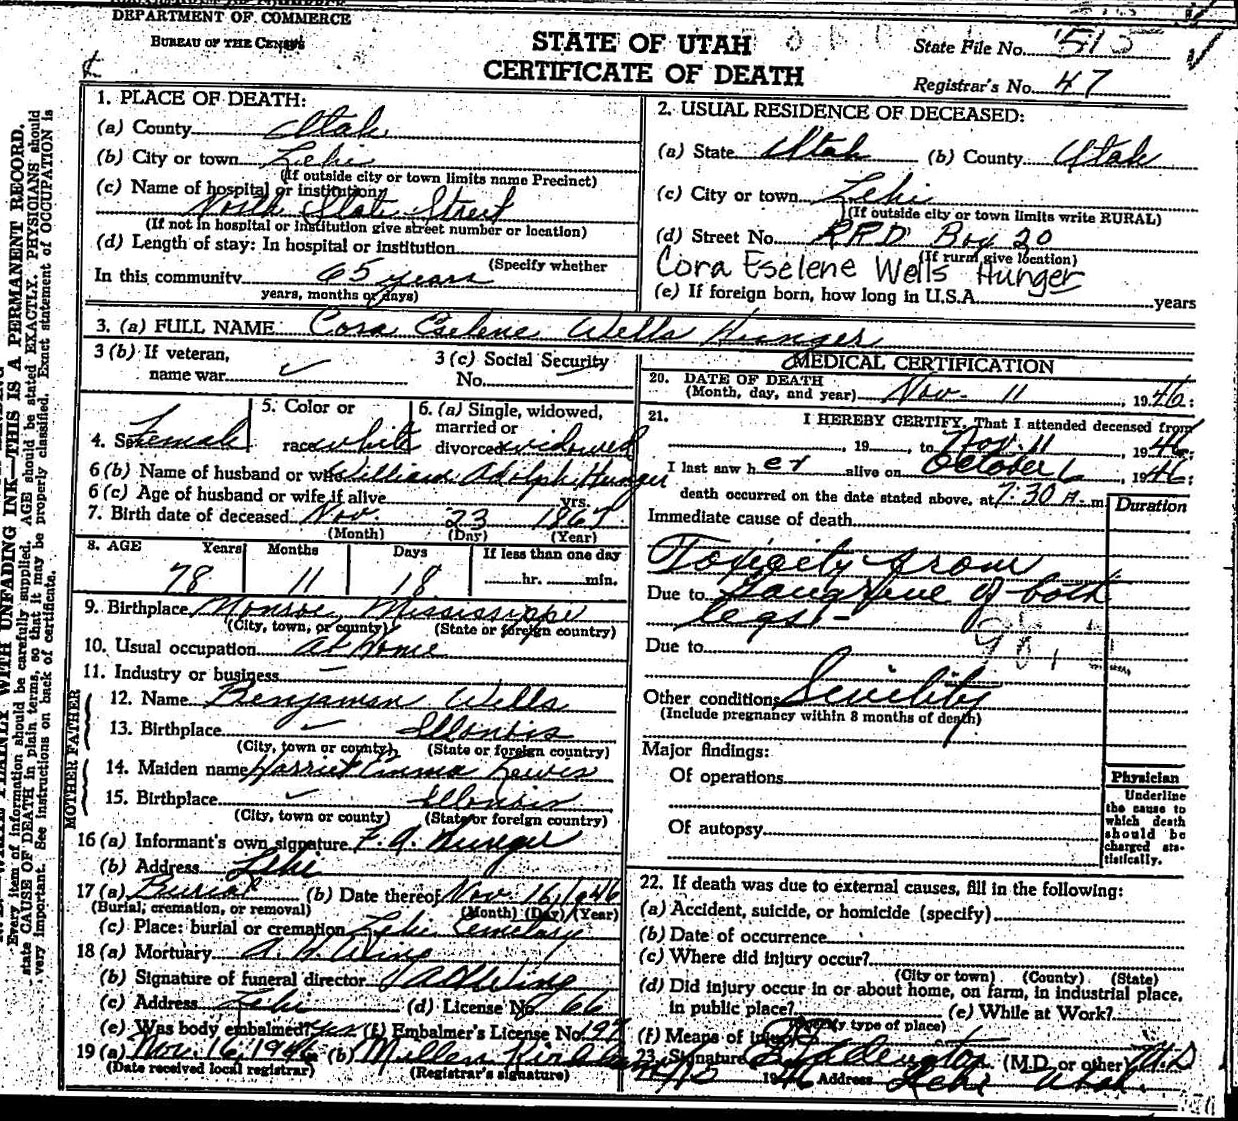 DEPARTMENT OF COMMERCE
BUREAU OF THE CENSUS
STATE OF UTAH
CERTIFICATE OF DEATH
State File No. 515
Registrar's No. 47
1. PLACE OF DEATH:
(a) County Utah
(b) City or town Lehi
(If outside city or town limits name Precinct)
(c) Name of hospital or institution:
North State Street
(If not in hospital or institution give street number or location)
(d) Length of stay: In hospital or institution
(Specify whether
In this community 65 years
years, months or days)
2. USUAL RESIDENCE OF DECEASED:
(a) State Utah (b) County Utah
(c) City or town Lehi
(If outside city or town limits write RURAL)
(d) Street No. RFD Box 20
(If rural give location)
Cora Eselene Wells Hunger
(e) If foreign born, how long in U.S.A. years
3. (a) FULL NAME Cora Eselene Wells Hunger
3 (b) If veteran,
name war
3 (c) Social Security
No.
4. Sex Female
5. Color or
race white
6. (a) Single, widowed,
married or
divorced widowed
6 (b) Name of husband or wife William Adolph Hunger
6 (c) Age of husband or wife if alive yrs.
7. Birth date of deceased Nov. 23 1867
(Month) (Day) (Year)
8. AGE Years Months Days If less than one day
78 11 18 hr. min.
9. Birthplace Monroe, Mississippi
(City, town, or county) (State or foreign country)
10. Usual occupation at home
11. Industry or business
FATHER
12. Name Benjamin Wells
13. Birthplace Illinois
(City, town or county) (State or foreign country)
MOTHER
14. Maiden name Harriet Emma Lewis
15. Birthplace Illinois
(City, town or county) (State or foreign country)
16 (a) Informant's own signature F. A. Hunger
(b) Address Lehi
17 (a) Burial (b) Date thereof Nov. 16, 1946
(Burial, cremation, or removal) (Month) (Day) (Year)
(c) Place: burial or cremation Lehi Cemetary
18 (a) Mortuary A. H. Wing
(b) Signature of funeral director
(c) Address Lehi (d) License No. 66
(e) Was body embalmed? yes (f) Embalmer's License No. 197
19 (a) Nov. 16, 1946 (b)
(Date received local registrar) (Registrar's signature)
MEDICAL CERTIFICATION
20. DATE OF DEATH
(Month, day, and year) Nov. 11, 1946;
21. I HEREBY CERTIFY, That I attended deceased from
, 19 , to Nov. 11, 1946;
I last saw her alive on October 6, 1946;
death occurred on the date stated above, at 7:30 A. m
Duration
Immediate cause of death
Toxicity from
Due to Gangrene of both
legs.-
Due to
Other conditions Senility
(Include pregnancy within 3 months of death)
Major findings:
Of operations
Of autopsy
Physician
Underline
the cause to
which death
should be
charged sta-
tistically.
22. If death was due to external causes, fill in the following:
(a) Accident, suicide, or homicide (specify)
(b) Date of occurrence
(c) Where did injury occur?
(City or town) (County) (State)
(d) Did injury occur in or about home, on farm, in industrial place,
in public place? (e) While at Work?
(Specify type of place)
(f) Means of injury
23. Signature (M.D. or other) M.D
1946 Address Lehi Utah.
WRITE PLAINLY WITH UNFADING INK—THIS IS A PERMANENT RECORD.
Every item of information should be carefully supplied. AGE should be stated EXACTLY. PHYSICIANS should
state CAUSE OF DEATH in plain terms, so that it may be properly classified. Exact statement of OCCUPATION is
very important. See instructions on back of certificate.